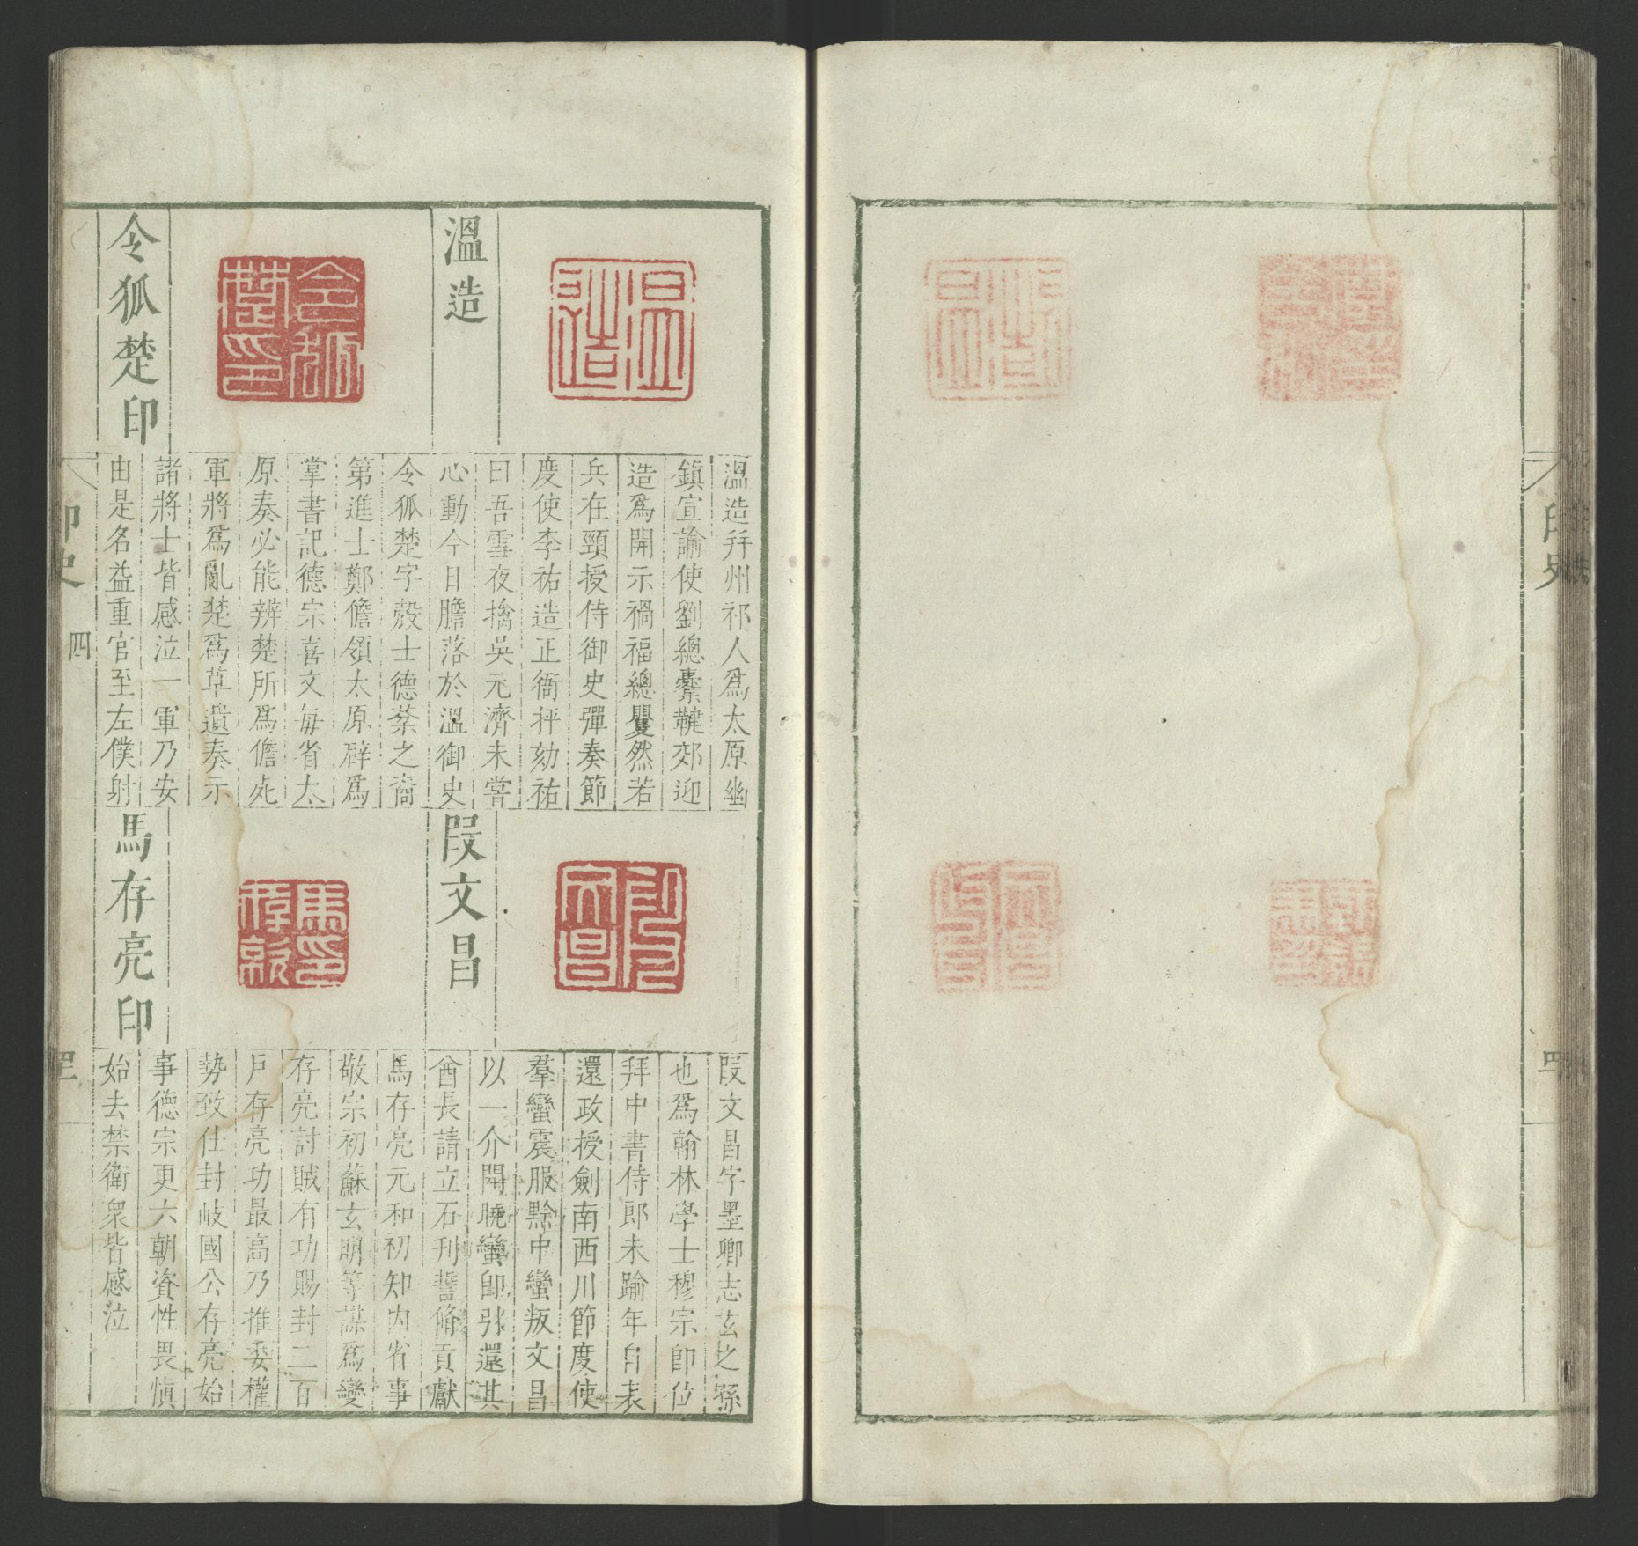 溫造
溫造幷州祁人爲太原幽
鎮宣諭使劉總櫜鞬郊迎
造爲開示禍福總矍然若
兵在頸授侍御史彈奏節
度使李祐造正衙抨劾祐
曰吾雪夜擒吳元濟未嘗
心動今日膽落於溫御史
令狐楚印
令狐楚字殼士德棻之裔
第進士鄭儋領太原辟爲
掌書記德宗喜文每省太
原奏必能辨楚所爲儋死
軍將爲亂楚爲草遺奏示
諸將士皆感泣一軍乃安
由是名益重官至左僕射
段文昌
段文昌字墨卿志玄之孫
也爲翰林學士穆宗卽位
拜中書侍郎未踰年自表
還政授劍南西川節度使
羣蠻震服黔中蠻叛文昌
以一介開曉蠻卽引還其
酋長請立石刋誓脩貢獻
馬存亮印
馬存亮元和初知內省事
敬宗初蘇玄明等謀爲變
存亮討賊有功賜封二百
戶存亮功最高乃推委權
勢致仕封岐國公存亮始
事德宗更六朝資性畏慎
始去禁衛衆皆感泣
印史
四